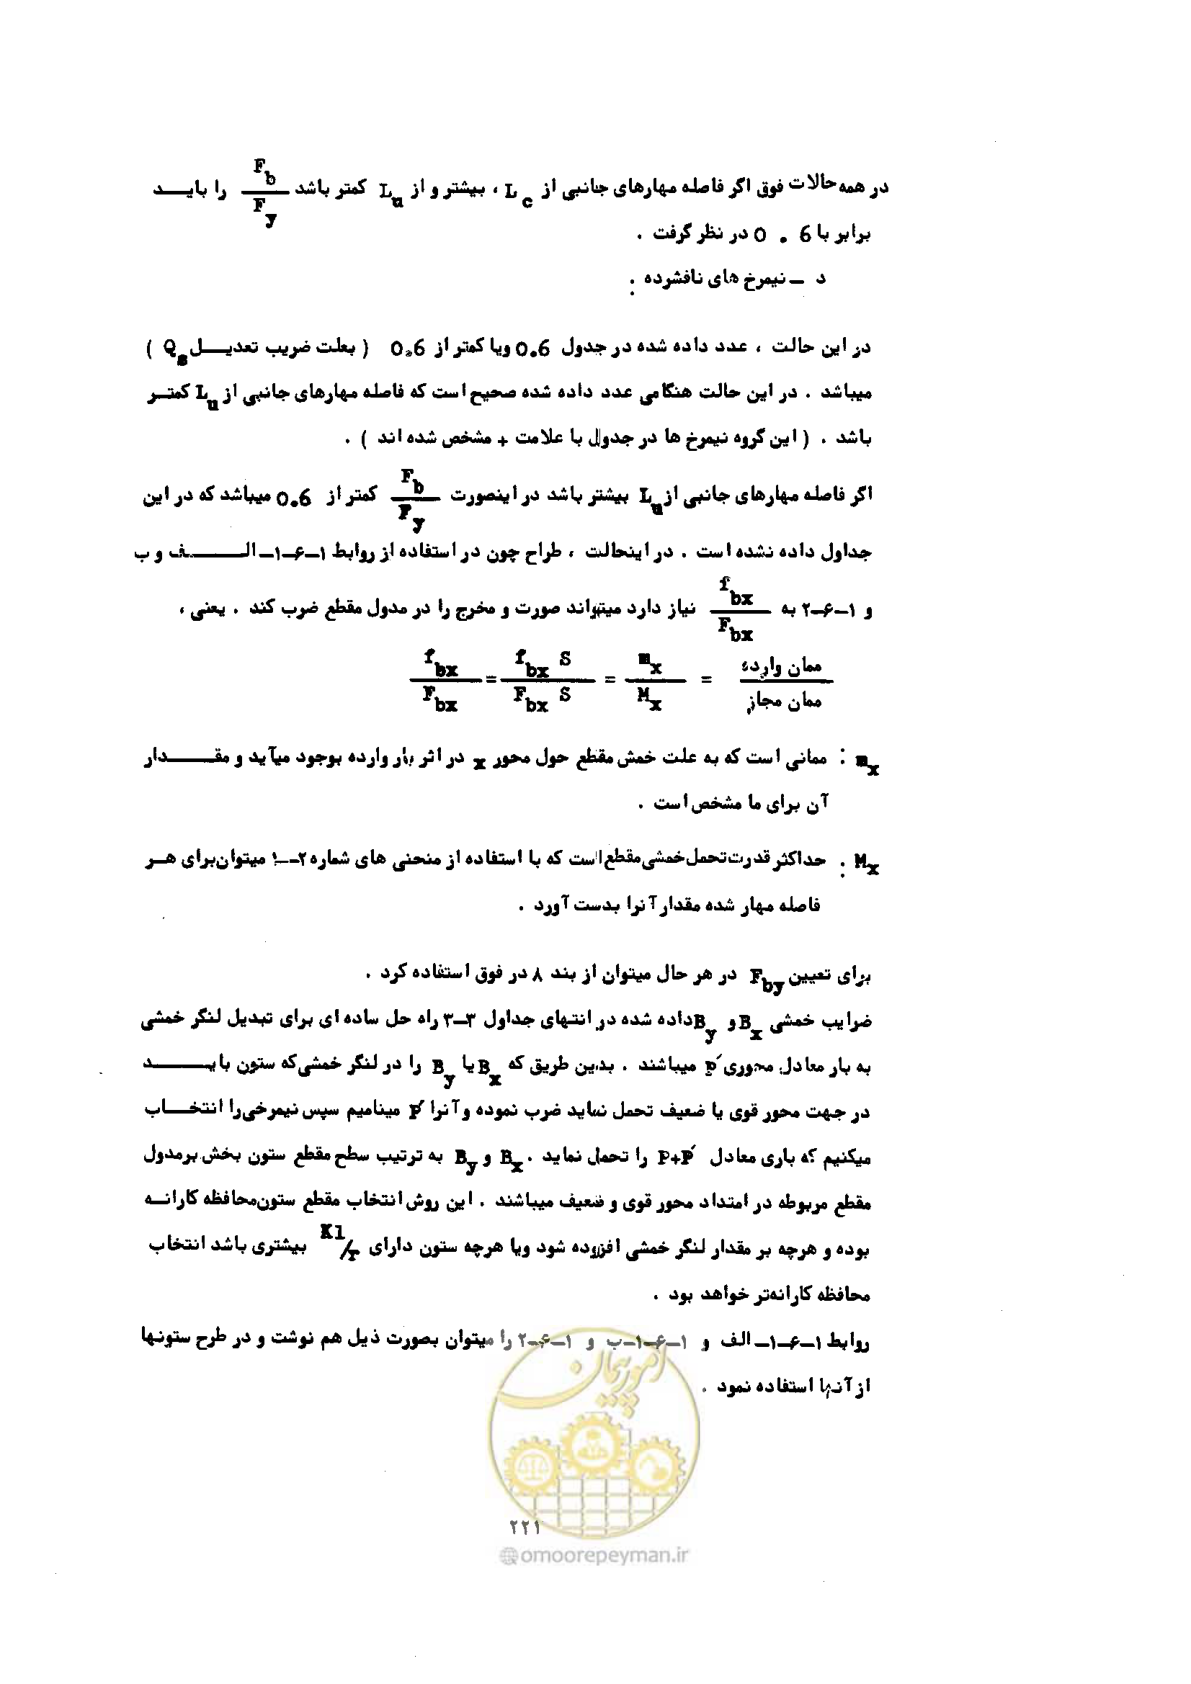 در همه حالات فوق اگر فاصله مهارهای جانبی از L_c ، بیشتر و از L_u کمتر باشد F_b/F_y را بایـــد
برابر با 0.6 در نظر گرفت .
د – نیمرخ های نافشرده :
در این حالت ، عدد داده شده در جدول 0.6 ویا کمتر از 0.6 ( بعلت ضریب تعدیـــل Q_s )
میباشد . در این حالت هنگامی عدد داده شده صحیح است که فاصله مهارهای جانبی از L_u کمتـر
باشد . ( این گروه نیمرخ ها در جدول با علامت + مشخص شده اند ) .
اگر فاصله مهارهای جانبی از L_u بیشتر باشد در اینصورت F_b/F_y کمتر از 0.6 میباشد که در این
جداول داده نشده است . در اینحالت ، طراح چون در استفاده از روابط ۱–۶–۱– الـــــف و ب
و ۱–۶–۲ به f_bx/F_bx نیاز دارد میتواند صورت و مخرج را در مدول مقطع ضرب کند . یعنی ،
f_bx/F_bx = f_bx S/F_bx S = m_x/M_x = ممان وارده/ممان مجاز
m_x : ممانی است که به علت خمش مقطع حول محور x در اثر بار وارده بوجود میآید و مقـــــدار
آن برای ما مشخص است .
M_x : حداکثر قدرت تحمل خمشی مقطع است که با استفاده از منحنی های شماره ۲–۱ میتوان برای هـر
فاصله مهار شده مقدار آنرا بدست آورد .
برای تعیین F_by در هر حال میتوان از بند ۸ در فوق استفاده کرد .
ضرایب خمشی B_x و B_y داده شده در انتهای جداول ۳–۳ راه حل ساده ای برای تبدیل لنگر خمشی
به بار معادل محوری P′ میباشند . بدین طریق که B_x یا B_y را در لنگر خمشی که ستون بایـــــد
در جهت محور قوی یا ضعیف تحمل نماید ضرب نموده و آنرا P′ مینامیم سپس نیمرخی را انتخـــاب
میکنیم که باری معادل P+P′ را تحمل نماید . B_x و B_y به ترتیب سطح مقطع ستون بخش بر مدول
مقطع مربوطه در امتداد محور قوی و ضعیف میباشند . این روش انتخاب مقطع ستون محافظه کارانـه
بوده و هرچه بر مقدار لنگر خمشی افزوده شود ویا هرچه ستون دارای Kl/r بیشتری باشد انتخاب
محافظه کارانه‌تر خواهد بود .
روابط ۱–۶–۱– الف و ۱–۶–۱–ب و ۱–۶–۲ را میتوان بصورت ذیل هم نوشت و در طرح ستونها
از آنها استفاده نمود .
امور پیمان
۲۲۱
@omoorepeyman.ir